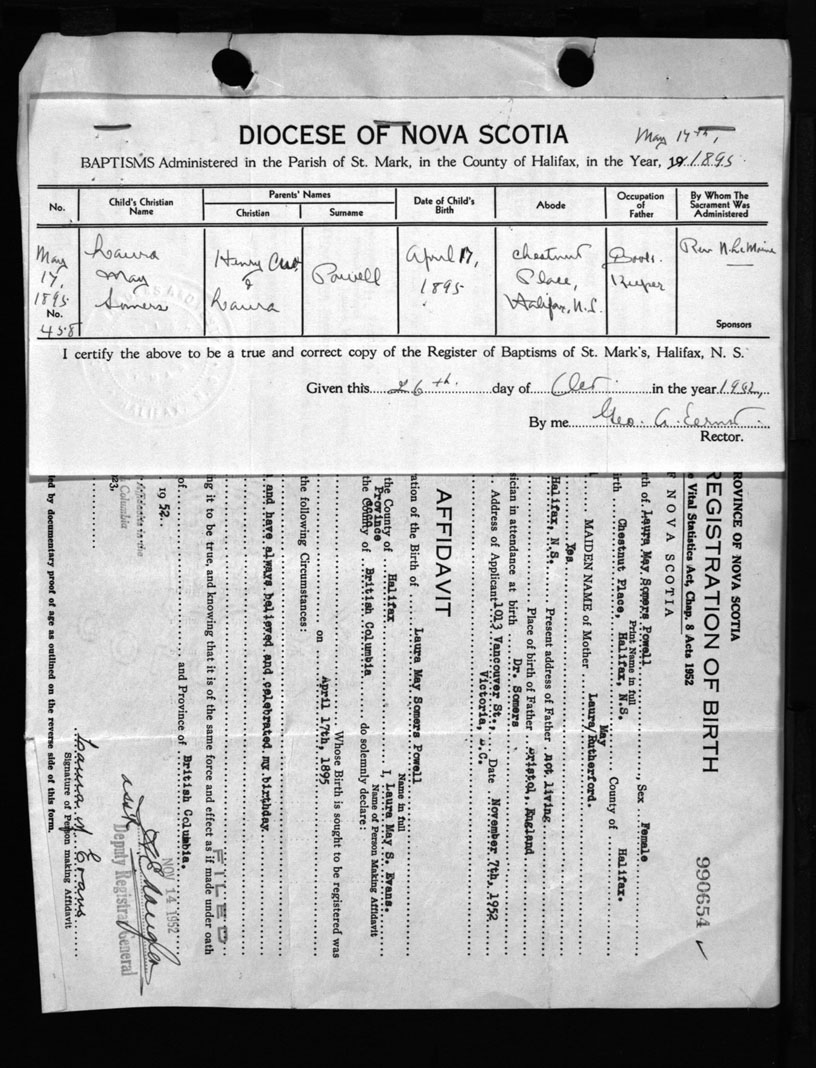 DIOCESE OF NOVA SCOTIA
May 17th,
BAPTISMS Administered in the Parish of St. Mark, in the County of Halifax, in the Year, 1895
No.
Child's Christian Name
Parents' Names
Christian
Surname
Date of Child's Birth
Abode
Occupation of Father
By Whom The Sacrament Was Administered
May 17, 1895
No. 458
Laura May Somers
Henry
& Laura
Powell
April 17, 1895
Chestnut Place, Halifax, N.S.
Book Keeper
Rev N. LeMoine
Sponsors
I certify the above to be a true and correct copy of the Register of Baptisms of St. Mark's, Halifax, N. S.
Given this 26th day of Oct. in the year 1952,
By me Geo. A. Ernst
Rector.
PROVINCE OF NOVA SCOTIA
Vital Statistics Act, Chap. 8 Acts 1952
REGISTRATION OF BIRTH
990654
F NOVA SCOTIA
rth of Laura May Somers Powell, Sex Female
Print Name in full
irth Chestnut Place, Halifax, N.S. County of Halifax.
May
MAIDEN NAME of Mother Laura/Rutherford.
Yes
Halifax, N.S. Present address of Father not living
Place of birth of Father Bristol, England
sician in attendance at birth Dr. Somers
Address of Applicant 1013 Vancouver St., Date November 7th, 1952
Victoria, B.C.
AFFIDAVIT
ation of the Birth of Laura May Somers Powell
Name in full
the County of Halifax I, Laura May S. Evans.
Name of Person Making Affidavit
Province
the County of British Columbia do solemnly declare:
Whose Birth is sought to be registered was
on April 17th, 1895
the following Circumstances:
and have always believed and celebrated my birthday
ng it to be true, and knowing that it is of the same force and effect as if made under oath
FILED
of and Province of British Columbia.
1952.
NOV 14 1952
Deputy Registrar General
Columbia
Laura M Evans
Signature of Person making Affidavit
ed by documentary proof of age as outlined on the reverse side of this form.